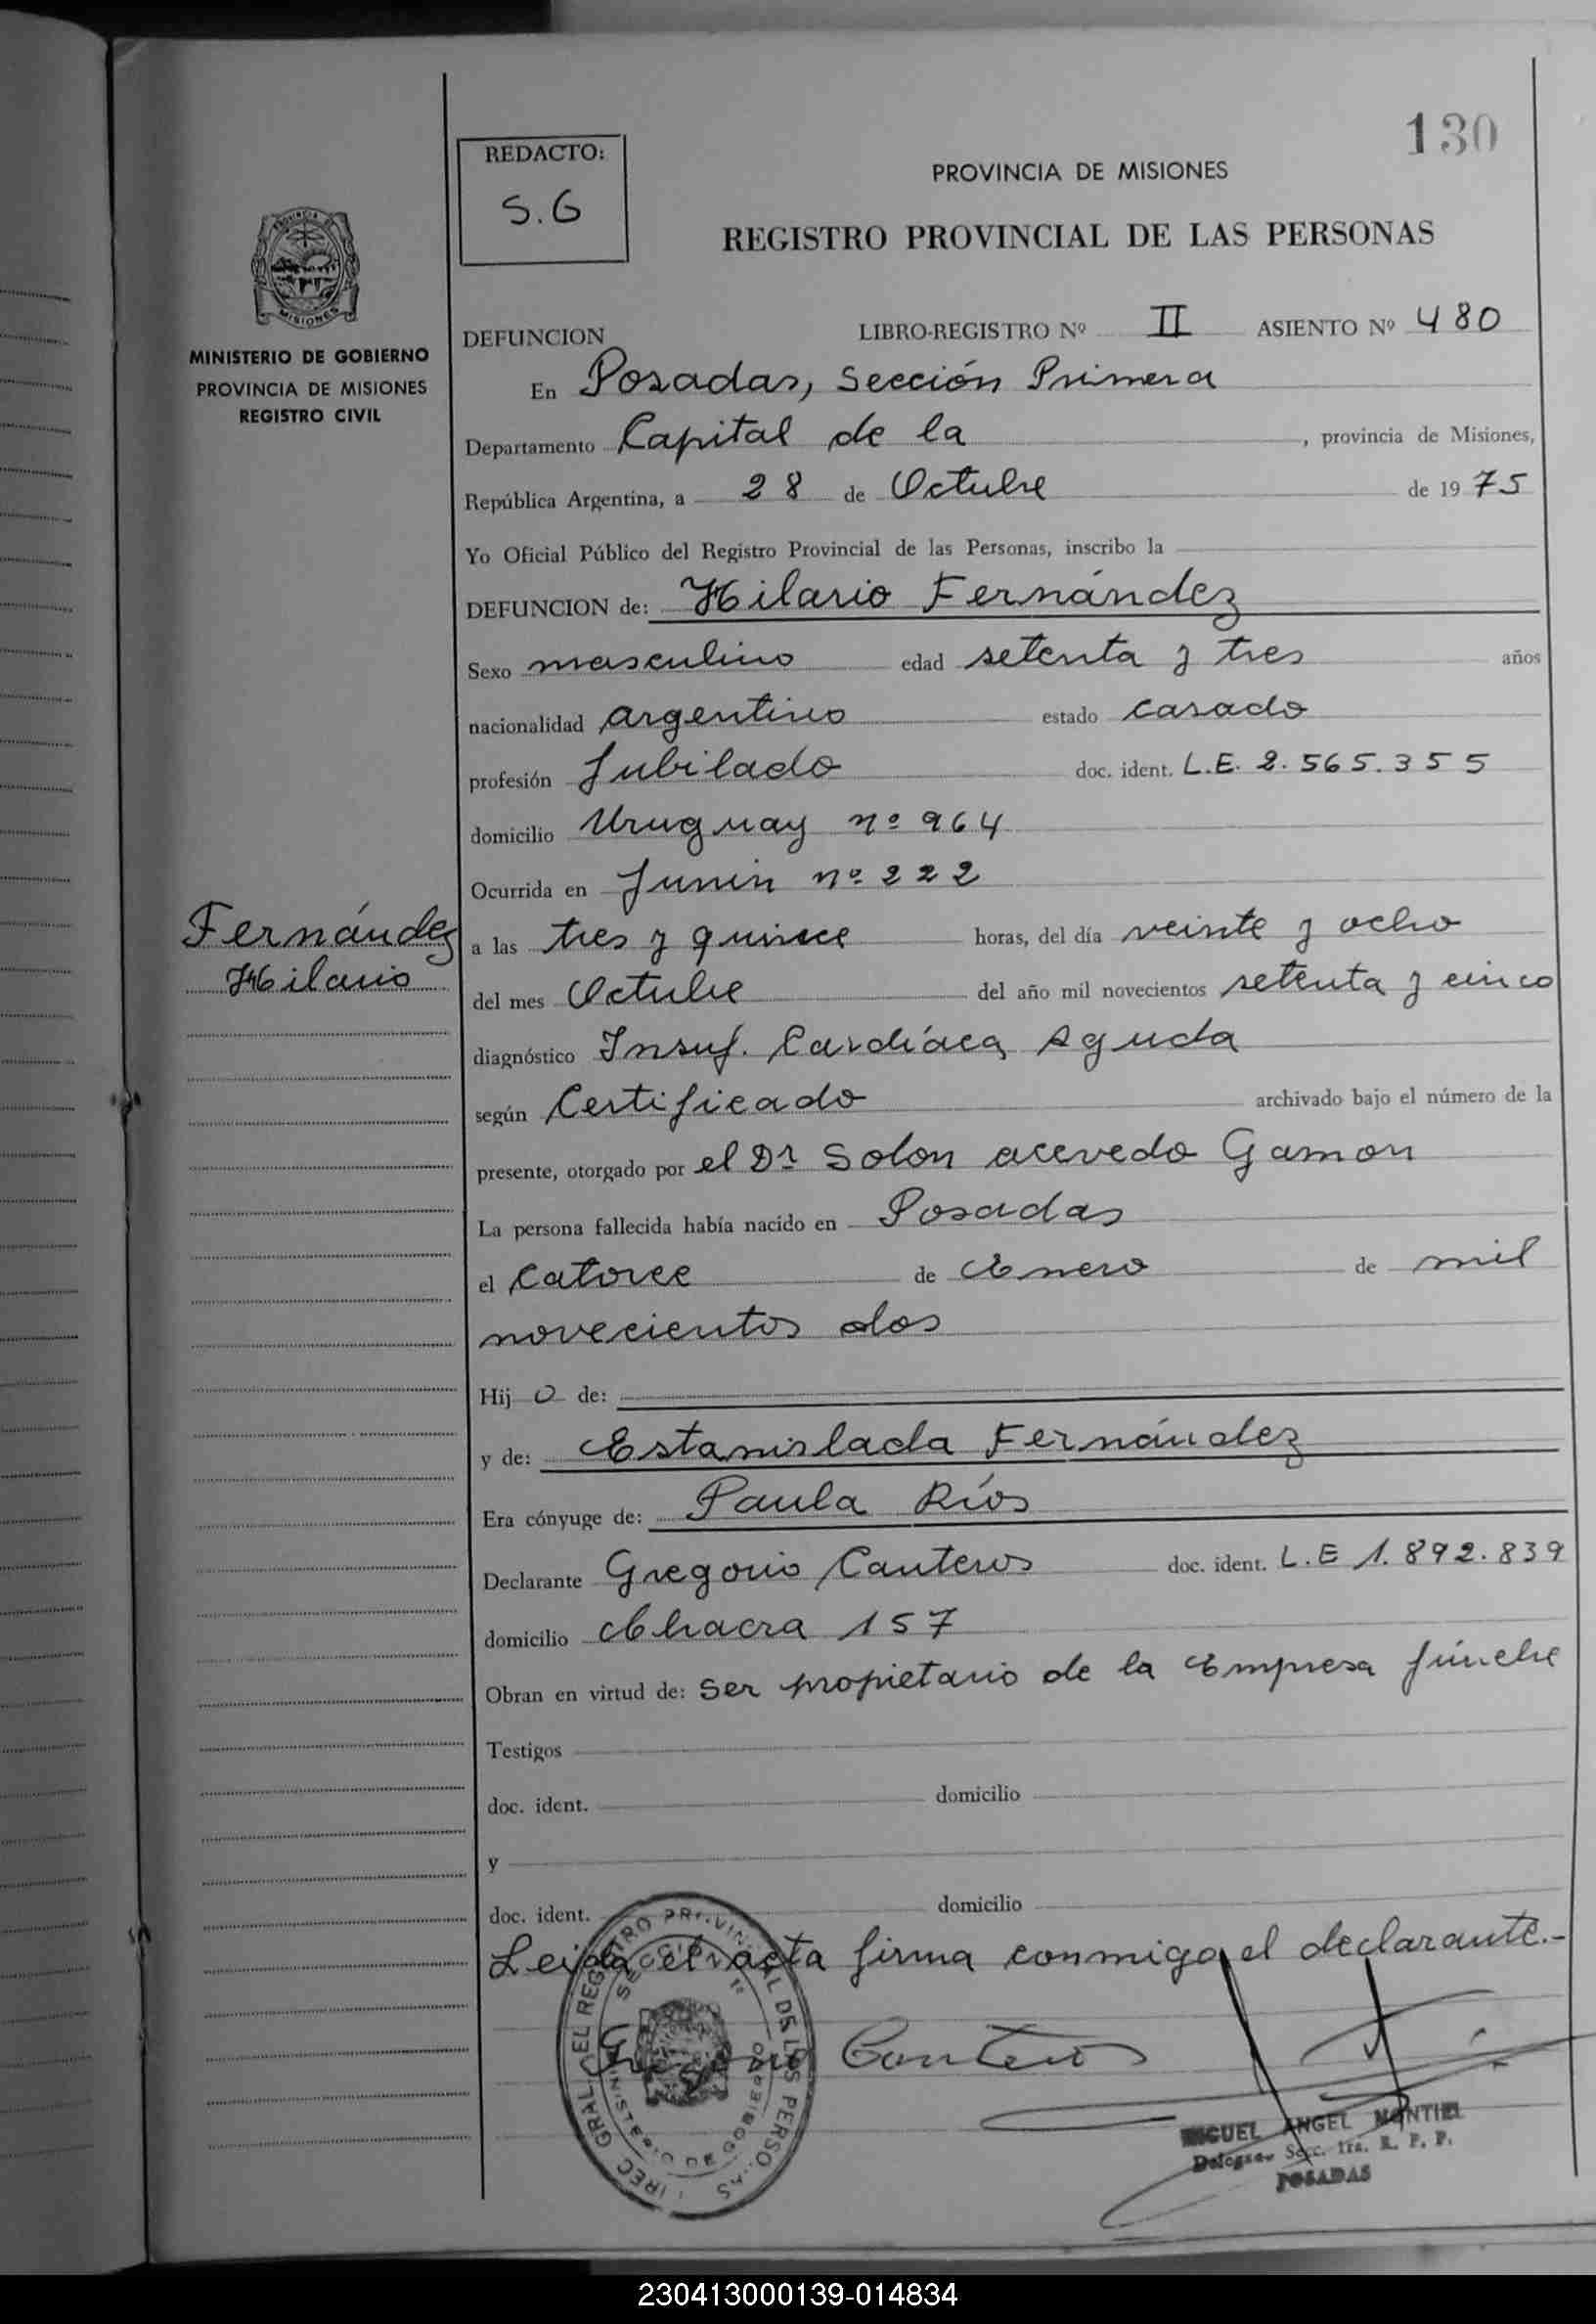 130
REDACTO:
S.G
PROVINCIA DE MISIONES
REGISTRO PROVINCIAL DE LAS PERSONAS
MISIONES
MINISTERIO DE GOBIERNO
PROVINCIA DE MISIONES
REGISTRO CIVIL
DEFUNCION LIBRO-REGISTRO Nº II ASIENTO Nº 480
En Posadas, Sección Primera
Departamento Capital de la , provincia de Misiones,
República Argentina, a 28 de Octubre de 1975
Yo Oficial Público del Registro Provincial de las Personas, inscribo la
DEFUNCION de: Hilario Fernández
Sexo masculino edad setenta y tres años
nacionalidad argentino estado casado
profesión Jubilado doc. ident. L.E. 2.565.355
domicilio Uruguay nº 964
Ocurrida en Junin nº 222
Fernández
Hilario
a las tres y quince horas, del día veinte y ocho
del mes Octubre del año mil novecientos setenta y cinco
diagnóstico Insuf. Cardíaca Aguda
según Certificado archivado bajo el número de la
presente, otorgado por el Dr Solon acevedo Gamon
La persona fallecida había nacido en Posadas
el catorce de Enero de mil
novecientos dos
Hij o de:
y de: Estanislada Fernández
Era cónyuge de: Paula Ríos
Declarante Gregorio Canteros doc. ident. L.E 1.892.839
domicilio Chacra 157
Obran en virtud de: Ser propietario de la Empresa fúnebre
Testigos
doc. ident. domicilio
y
doc. ident. domicilio
Leida el acta firma conmigo el declarante.-
Gregorio Canteros
MIGUEL ANGEL MONTIEL
Delegado Secc. 1ra. R. P. P.
POSADAS
230413000139-014834